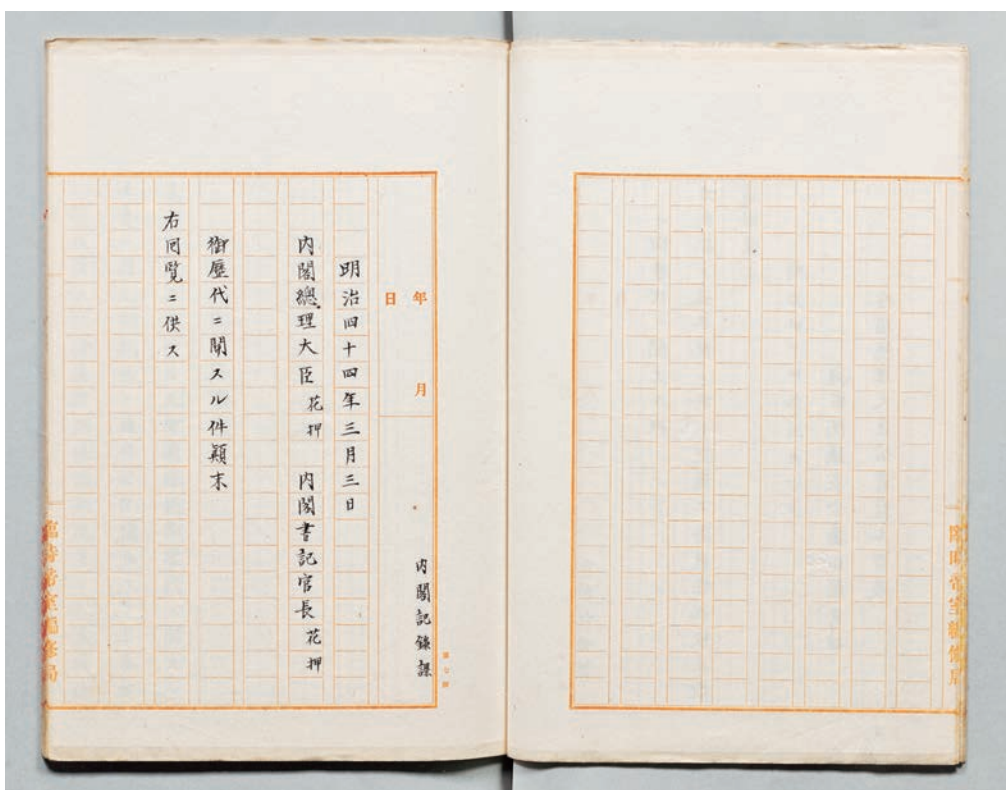 臨時帝室編修局
年 月 日
内閣記録課
明治四十四年三月三日
内閣總理大臣 花押 内閣書記官長 花押
御歴代ニ関スル件顛末
右回覧ニ供ス
臨時帝室編修局